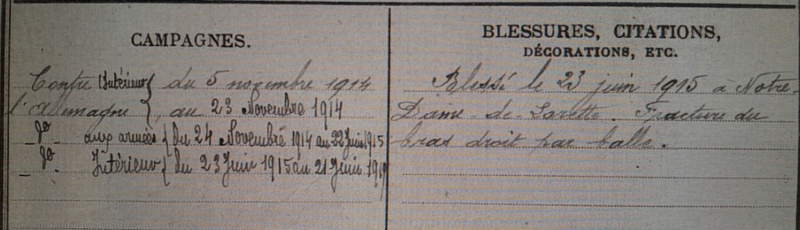 CAMPAGNES.
Contre (Intérieur { du 5 novembre 1914
l'Allemagne }, au 23 Novembre 1914
_ do _ aux armées { du 24 Novembre 1914 au 22 Juin 1915
_ do _ Intérieur { du 23 Juin 1915 au 21 Juin 1919
BLESSURES, CITATIONS,
DÉCORATIONS, ETC.
Blessé le 23 juin 1915 à Notre-
Dame-de-Lorette. Fracture du
bras droit par balle.